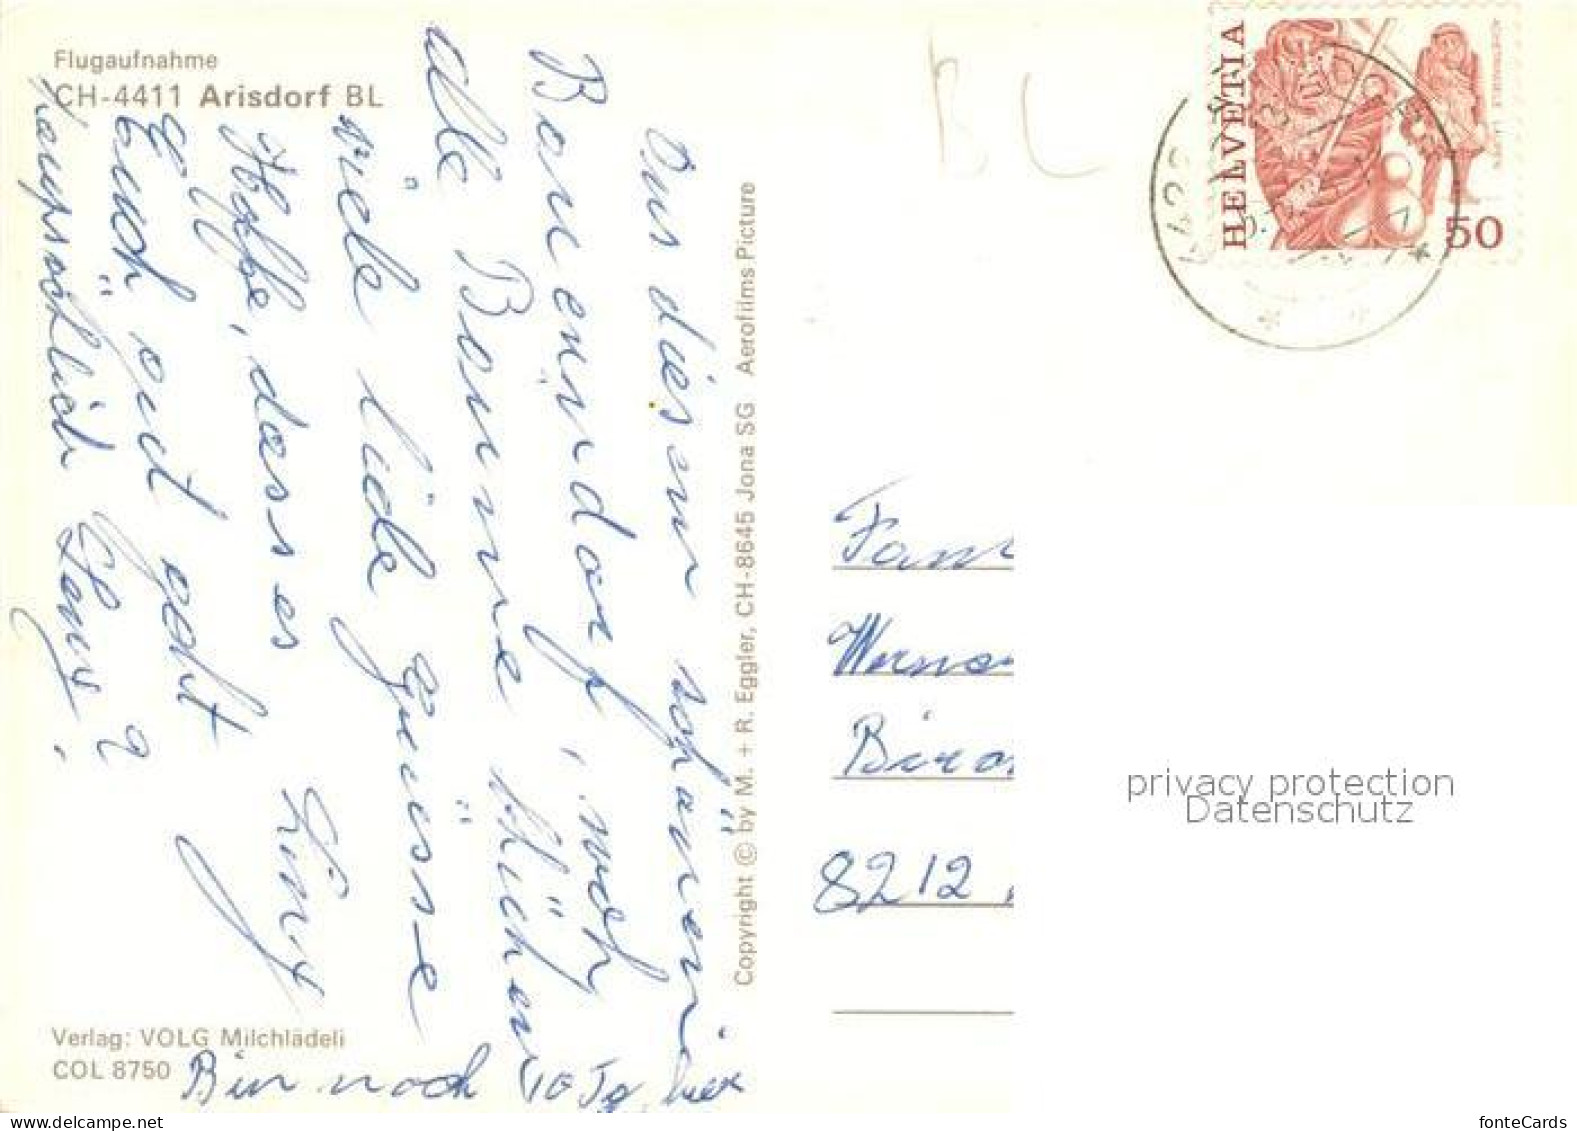 Flugaufnahme
CH-4411 Arisdorf BL
Aus diesem schönen
Bauerndorf, noch
alle Bäume blühen
viele liebe Grüsse
Hoffe, dass es
Euch gut geht
hauptsächlich
Bin noch 10 Tg. hier
Verlag: VOLG Milchlädeli
COL 8750
Copyright © by M. + R. Eggler, CH-8645 Jona SG Aerofilms Picture
BL
HELVETIA
50
Fam
Werne
8212
privacy protection
Datenschutz
fonteCards